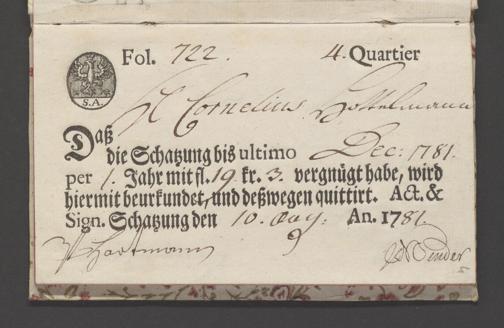 Fol. 722. 4. Quartier
S.A.
H Cornelius
Daß
die Schatzung bis ultimo Dec: 1781.
per 1. Jahr mit fl. 19 kr. 3. vergnügt habe, wird
hiermit beurkundet, und deßwegen quittirt. Act. &
Sign. Schatzung den 10. An. 1781.
Hartmann